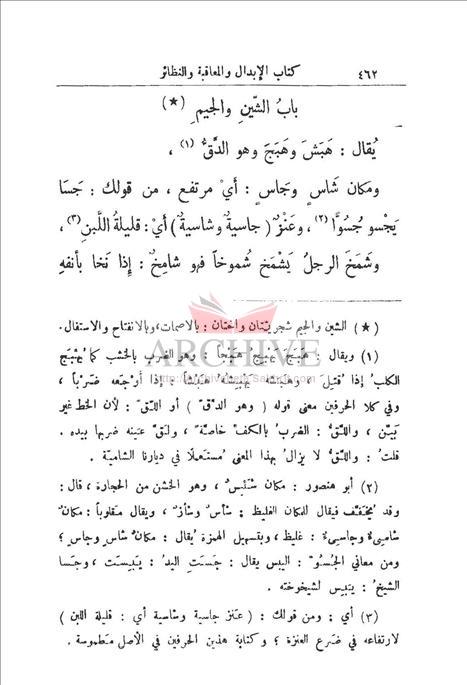 ٤٦٢ كتاب الإبدال والمعاقبة والنظائر
بابُ الشّينِ والجيمِ (★)
يُقال : هَبَشَ وهَبَجَ وهو الدَّقُّ (١) ،
ومكان شَاسٍ وجَاسٍ : أيْ مرتفع ، من قولك : جَسَا
يَجْسو جُسُوًّا (٢) ، وعَنْزٌ (جاسيةٌ وشاسيةٌ) أيْ : قليلةُ اللَّبنِ (٣) ،
وشَمَخَ الرجلُ يَشْمَخ شُموخاً فهو شامِخٌ : إذا نَخا بأنفهِ
(★) الشين والجيم شجريّتان واختان : بالاصمات، وبالانفتاح والاستفال.
(١) ويقال : هَبَجَ يَهْبِجُ هَبْجاً : وهو الضرب بالخشب كما يُهْبَج
الكلب إذا قُتِلَ ، وهَبَشه يَهْبِشُه هَبْشاً : إذا أوجَعه ضَرْباً ،
وفي كلا الحرفين معنى قوله (وهو الدَّقّ) أو اللتّق : لأن الخط غير
بَيّن ، واللتّق : الضربُ بالكفّ خاصّة ، ولتق عينه ضربها بيده .
قلتُ : واللتّق لا يزال بهذا المعنى مُستعملاً في ديارنا الشاميّة .
(٢) أبو منصور : مكان شَئِسٌ ، وهو الخشن من الحجارة ، قال :
وقد يُخفّف فيقال للمكان الغليظ : شأسٌ وشأزٌ ، ويقال مقلوباً : مكانٌ
شاسِئٌ وجاسِئٌ : غليظ ، وبتسهيل الهمزة يُقال : مكانٌ شاسٍ وجاسٍ ؛
ومن معاني الجُسُوّ : اليبس يقال : جَسَت اليدُ : يَبِسَت ، وجَسا
الشيخُ : يَبِس لشيخوخته .
(٣) أي : ومن قولك : (عَنز جاسية وشاسية أي : قليلة اللبن)
لارتفاعه في ضرع العنزة ؛ وكتابة هذين الحرفين في الأصل مَطموسة .
ARCHIVE